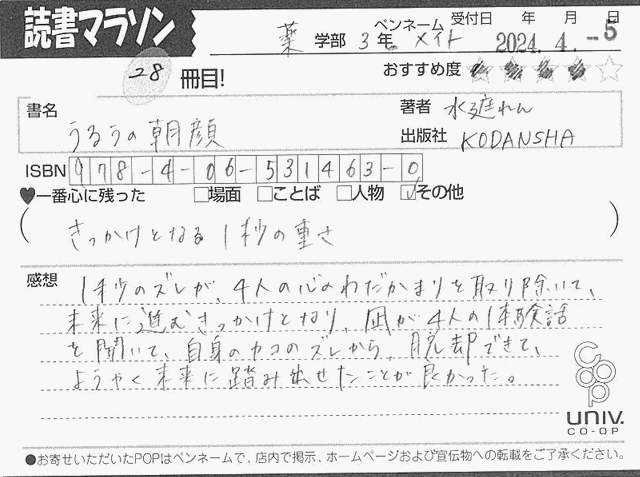 読書マラソン
薬 学部 3年 ペンネーム メイト 受付日 年 月 日 2024.4.-5
28 冊目!
おすすめ度 ★★★★☆
書名 うるうの朝顔
著者 水庭れん
出版社 KODANSHA
ISBN 978-4-06-531463-0
♥一番心に残った □場面 □ことば □人物 ☑その他
(きっかけとなる1秒の重さ)
感想 1秒のズレが、4人の心のわだかまりを取り除いて、
未来に進むきっかけとなり、凪が4人の体験話
を聞いて、自身のカコのズレから、脱却できて、
ようやく未来に踏み出せたことが良かった。
coop
UNIV.
CO-OP
●お寄せいただいたPOPはペンネームで、店内で掲示、ホームページおよび宣伝物への転載をご了承ください。